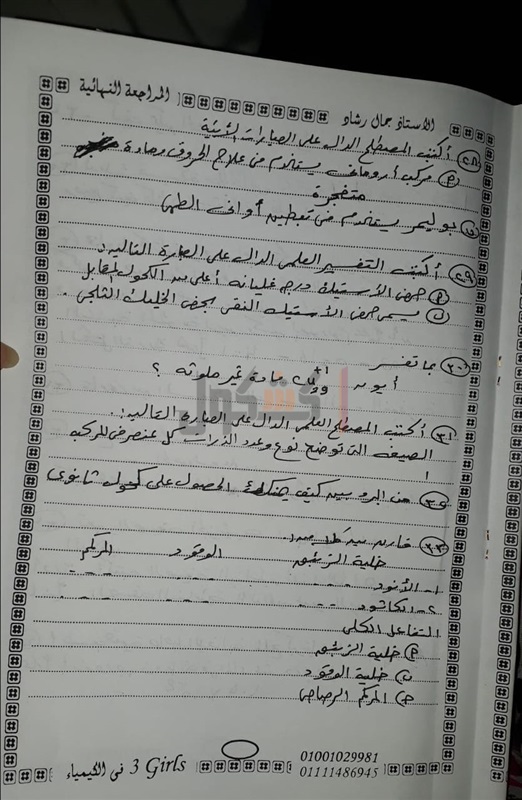 الأستاذ جمال رشاد
المراجعة النهائية
٢٨ أكتب المصطلح الدال على العبارات الأتية
(أ) مركب أروماتى يستخدم فى علاج الحروق ومادة
متفجرة
(ب) بوليمر يستخدم فى تبطين أوانى الطهى
٢٩ أكتب التفسير العلمى الدال على العبارة التاليه
(أ) حمض الأستيك درجه غليانه أعلى من الكحول المقابل
(ب) يسمى حمض الأستيك النقى بحمض الخليك الثلجى .
٣٠ بما تفسر
أيون مادة غير ملونه ؟
كشكول
٣١ أكتب المصطلح العلمى الدال على العبارة التاليه :.
الصيغه التى توضح نوع وعدد الذرات كل عنصر فى المركب
٣٢ من البروبين كيف يمكنك الحصول على كحول ثانوى
٣٣ قارن بين كلا من :
خلية الزئبق الوقود المركم
١- الأنود
٢- الكاثود
التفاعل الكلى
(أ) خلية الزئبق
(ب) خلية الوقود
(ج) المركم الرصاصى
3 Girls فى الكيمياء
01001029981
01111486945